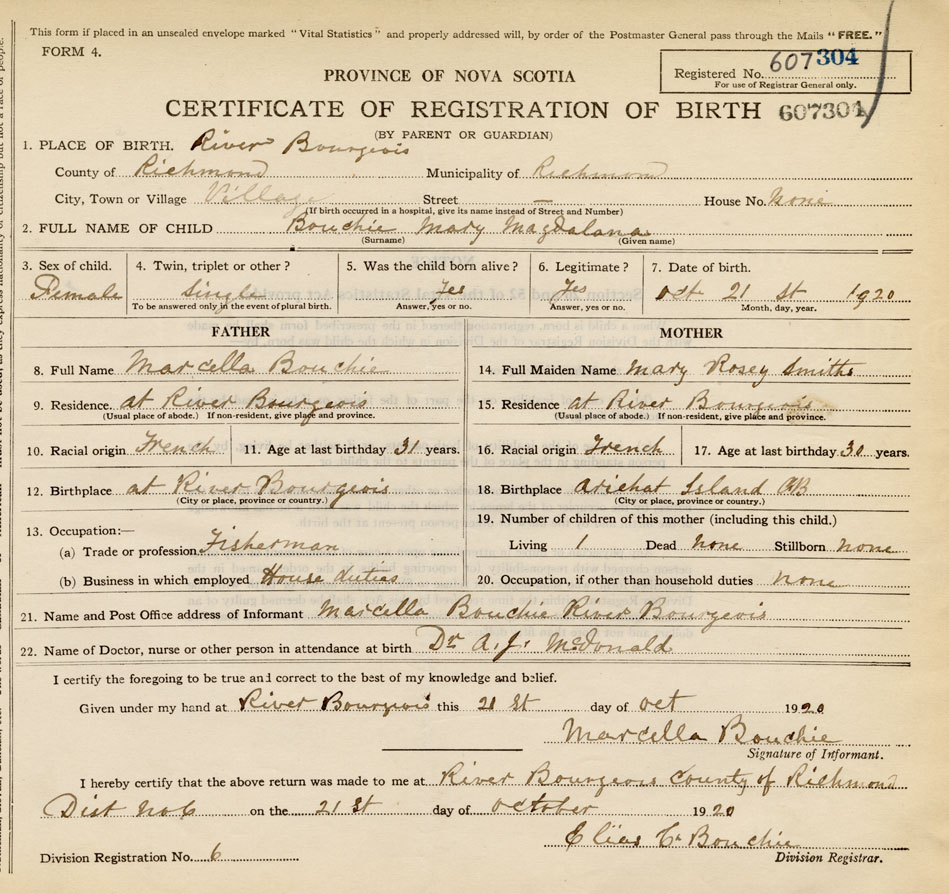 This form if placed in an unsealed envelope marked "Vital Statistics" and properly addressed will, by order of the Postmaster General pass through the Mails "FREE."
FORM 4.
Registered No. 607304
For use of Registrar General only.
PROVINCE OF NOVA SCOTIA
CERTIFICATE OF REGISTRATION OF BIRTH 607304
(BY PARENT OR GUARDIAN)
1. PLACE OF BIRTH. River Bourgeois
County of Richmond Municipality of Richmond
City, Town or Village Village Street — House No. None
(If birth occurred in a hospital, give its name instead of Street and Number)
2. FULL NAME OF CHILD Bouchie Mary Magdalana
(Surname) (Given name)
3. Sex of child. 4. Twin, triplet or other? 5. Was the child born alive? 6. Legitimate? 7. Date of birth.
Female Single Yes Yes Oct 21 St 1920
To be answered only in the event of plural birth. Answer, yes or no. Answer, yes or no. Month, day, year.
FATHER MOTHER
8. Full Name Marcella Bouchie 14. Full Maiden Name Mary Rosey Smiths
9. Residence. at River Bourgeois 15. Residence at River Bourgeois
(Usual place of abode.) If non-resident, give place and province. (Usual place of abode.) If non-resident, give place and province.
10. Racial origin French 11. Age at last birthday 31 years. 16. Racial origin French 17. Age at last birthday 30 years.
12. Birthplace at River Bourgeois 18. Birthplace Arichat Island CB
(City or place, province or country.) (City or place, province or country.)
13. Occupation:— 19. Number of children of this mother (including this child.)
(a) Trade or profession Fisherman Living 1 Dead None Stillborn None
(b) Business in which employed House duties 20. Occupation, if other than household duties None
21. Name and Post Office address of Informant Marcella Bouchie River Bourgeois
22. Name of Doctor, nurse or other person in attendance at birth Dr A. J. McDonald
I certify the foregoing to be true and correct to the best of my knowledge and belief.
Given under my hand at River Bourgeois this 21 St day of oct 1920
Marcella Bouchie
Signature of Informant.
I hereby certify that the above return was made to me at River Bourgeois County of Richmond
Dist No 6 on the 21 St day of October 1920
Elias C. Bouchie
Division Registration No. 6 Division Registrar.